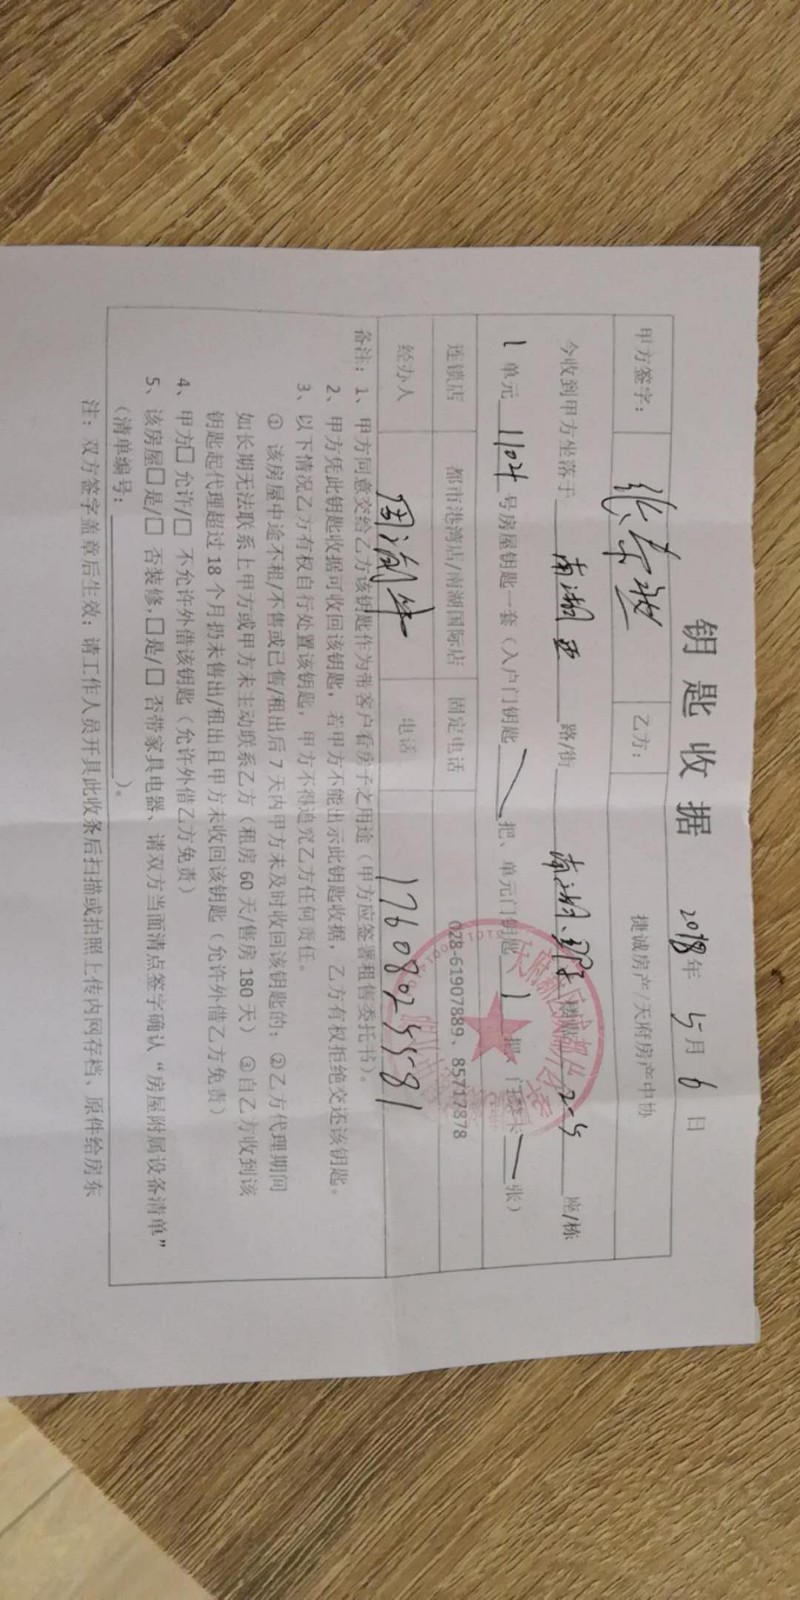 钥匙收据
2018年5月6日
甲方签字： 乙方： 捷诚房产/天府房产中协
今收到甲方坐落于 南湖西 路/街 南湖 座/栋
1 单元 1104 号房屋钥匙一套（入户门钥匙 把、单元门钥匙 1 把、 张）
连锁店 都市港湾店/南湖国际店 固定电话 028-61907889、85717878
经办人 周 电话 17608025581
备注：1、甲方同意交给乙方该钥匙作为带客户看房子之用途（甲方应签署租售委托书）。
2、甲方凭此钥匙收据可收回该钥匙，若甲方不能出示此钥匙收据，乙方有权拒绝交还该钥匙。
3、以下情况乙方有权自行处置该钥匙，甲方不得追究乙方任何责任。
① 该房屋中途不租/不售或已售/租出后 7 天内甲方未及时收回该钥匙的；②乙方代理期间
如长期无法联系上甲方或甲方未主动联系乙方（租房 60 天/售房 180 天）③自乙方收到该
钥匙起代理超过 18 个月扔未售出/租出且甲方未收回该钥匙（允许外借乙方免责）
4、甲方□ 允许/□ 不允许外借该钥匙（允许外借乙方免责）
5、该房屋□ 是/□ 否装修，□是/□ 否带家具电器、请双方当面清点签字确认“房屋附属设备清单”
（清单编号： ）。
注：双方签字盖章后生效；请工作人员开具此收条后扫描或拍照上传内网存档、原件给房东